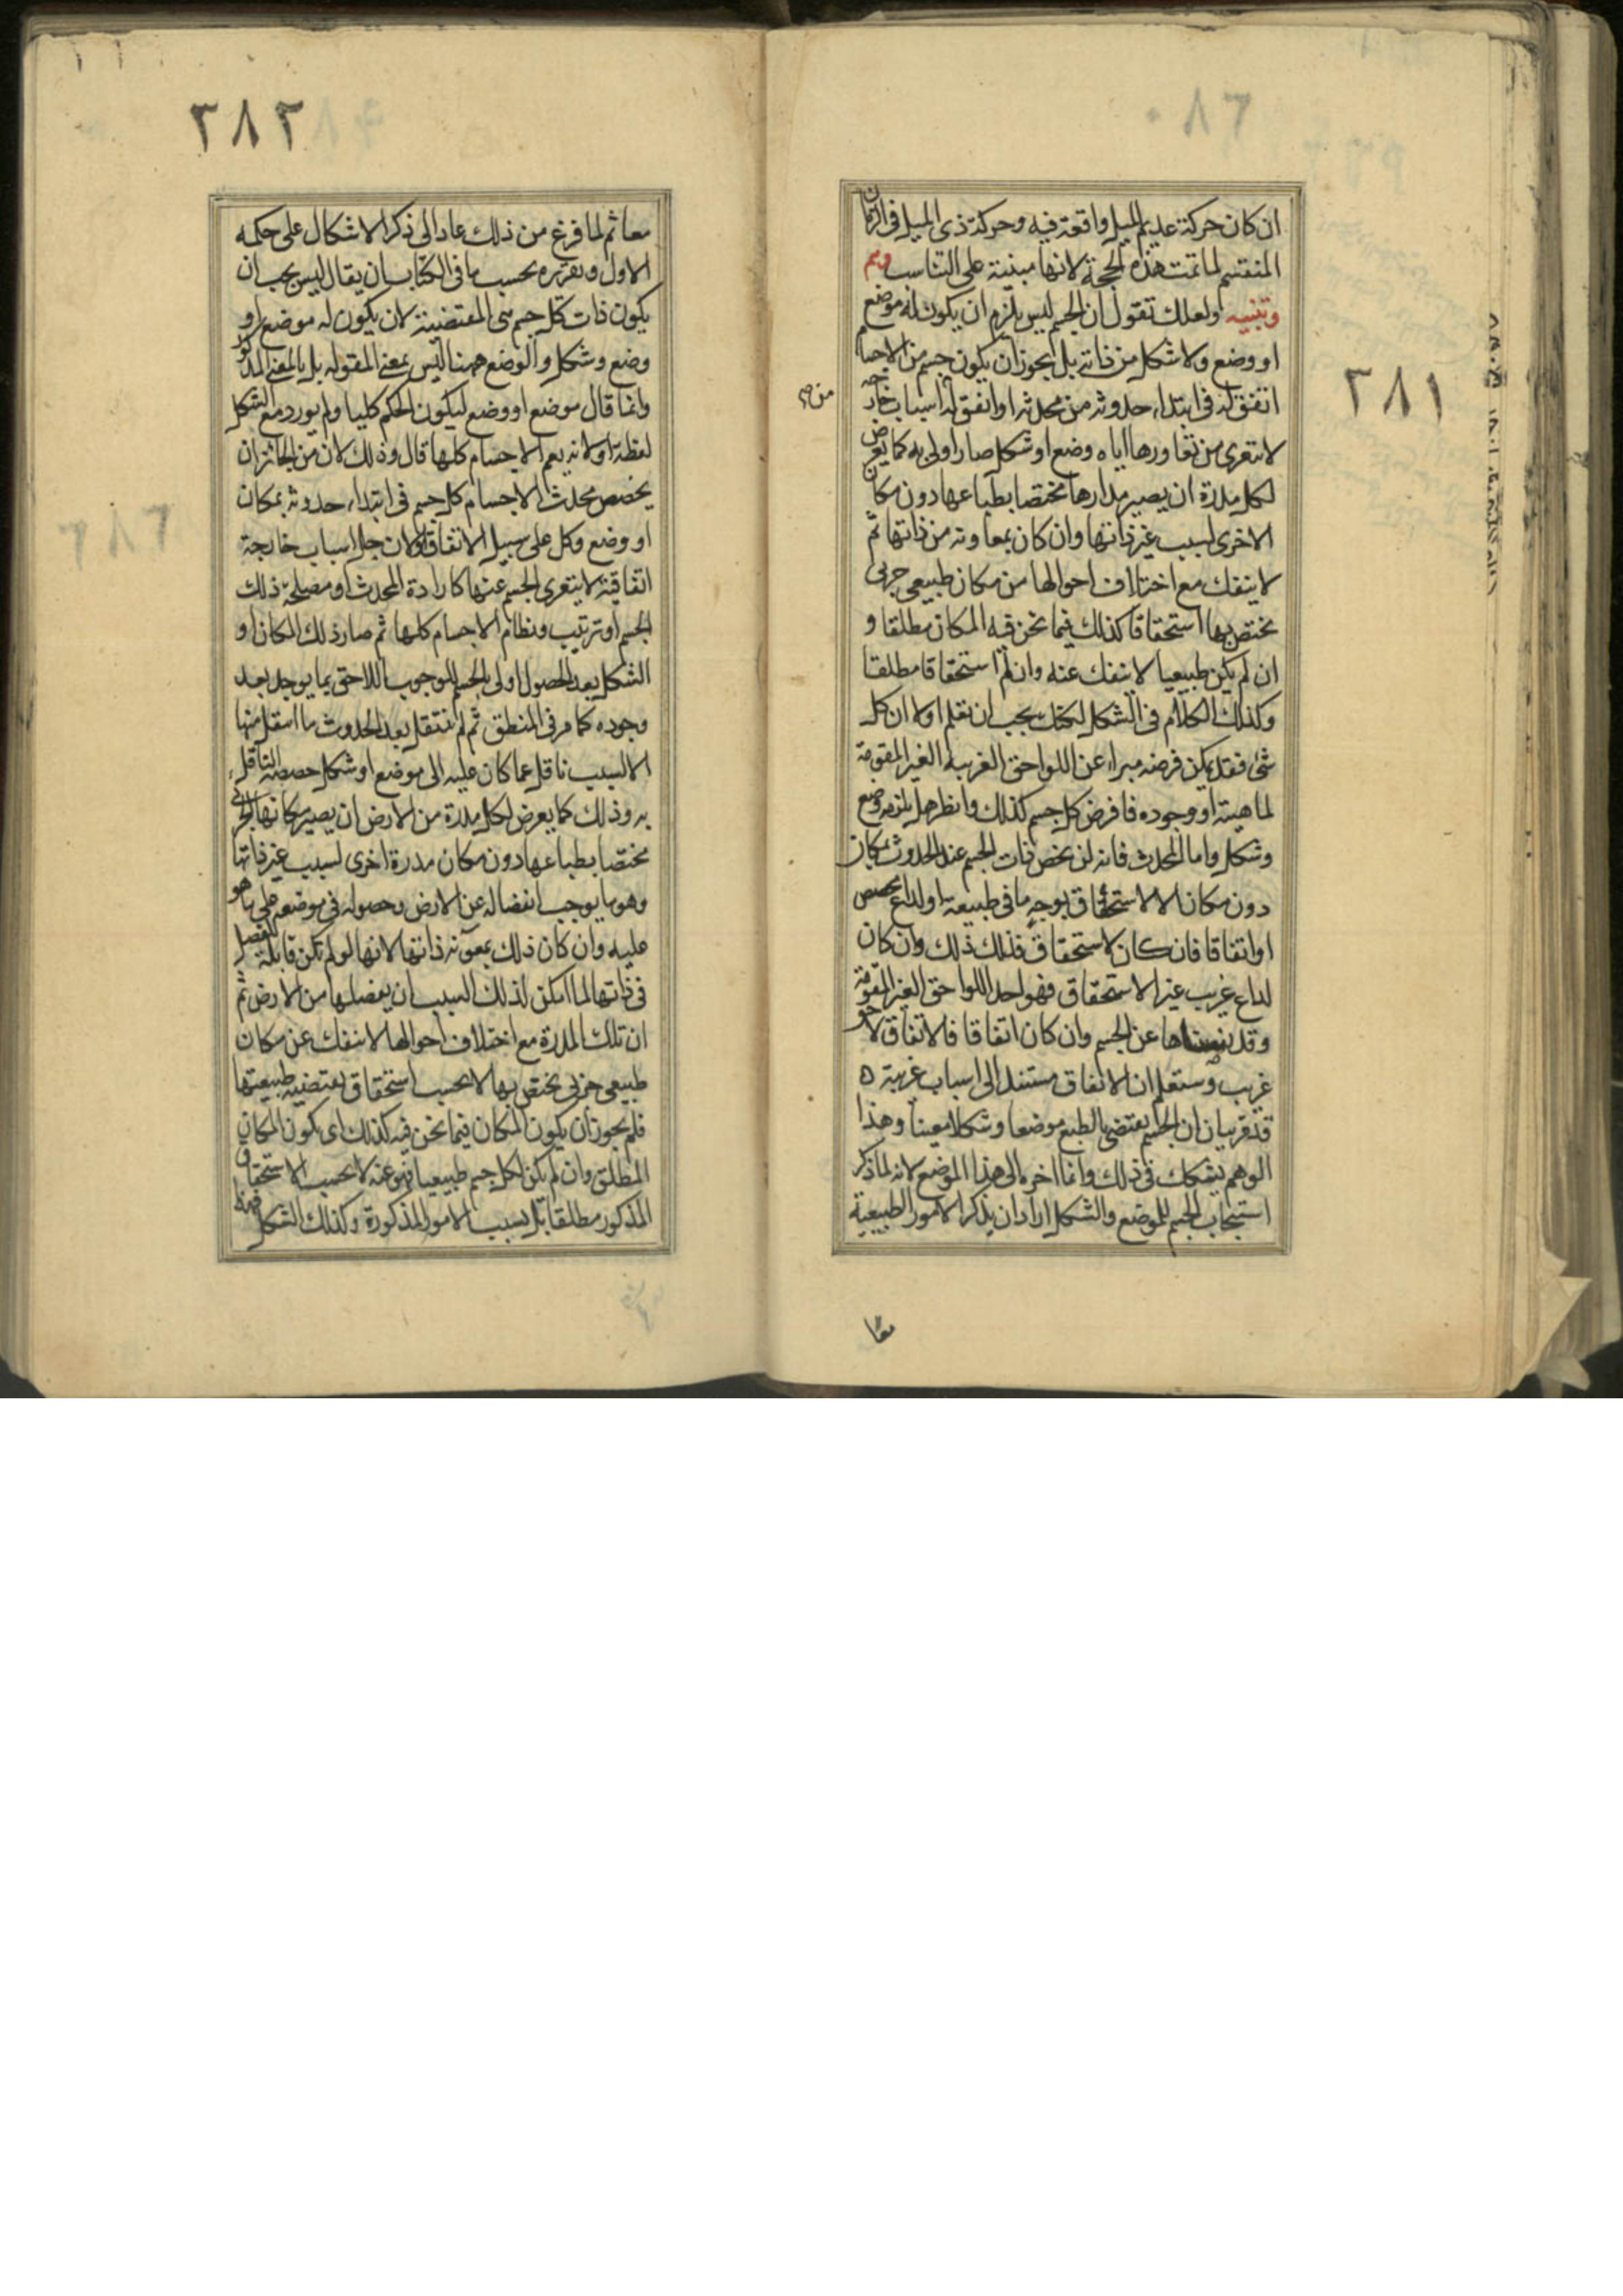 ٣٨١
ان كان حركة عديم الميل واقعة فيه وحركة ذى الميل فى الزمان
المنقسم لما تمت هذه الحجة لانها مبنية على التناسب وهم
وتنبيه ولعلك تقول ان الجسم ليس يلزم ان يكون له موضع
او وضع ولا شكل من ذاته بل يجوز ان يكون جسم من الاجسام
اتفق له فى ابتداء حدوثه من محدثه او اتفق له اسباب خارجة
لا تتعرى من تعاورها اياه وضع او شكل صار اولى به كما يعرض
لكل مدرة ان يصير مدارها مختصا بطباعها دون مكان
الاخرى لسبب غير ذاتها وان كان بمعاونة من ذاتها ثم
لا ينفك مع اختلاف احوالها من مكان طبيعى جزئى
يختص بها استحقاقا كذلك فيما نحن فيه المكان مطلقا و
ان لم يكن طبيعيا لا ينفك عنه وان لم استحقاقا مطلقا
وكذلك الكلام فى الشكل لكنك يجب ان تعلم اولا ان كل
شئ فقد يمكن فرضه مبراء عن اللواحق الغريبة الغير المقومة
لماهيته او وجوده فافرض كل جسم كذلك وانظر هل يلزمه وضع
وشكل واما المحدث فانه لن يخص ذات الجسم عند الحدوث بمكان
دون مكان الا لاستحقاق بوجه ما فى طبيعته او لداع مخصص
او اتفاقا فان كان لاستحقاق فذلك ذلك وان كان
لداع غريب غير الاستحقاق فهو احد اللواحق الغير المقومة
وقد نفضناها عن الجسم وان كان اتفاقا فالاتفاق لاحق
غريب وستعلم ان الاتفاق مستند الى اسباب غريبة ه
قد قر بيان ان الجسم يقتضى بالطبع موضعا وشكلا معينا وهذا
الوهم يشكك فى ذلك وانما اخره الى هذا الموضع لانه لما ذكر
استيجاب الجسم للموضع والشكل اراد ان يذكر الامور الطبيعية
معا
٣٨٢
معا ثم لما فرغ من ذلك عاد الى ذكر الاشكال على حكمه
الاول وتقريره بحسب ما فى الكتاب ان يقال ليس يجب ان
يكون ذات كل جسم هى المقتضية لان يكون له موضع او
وضع وشكل والوضع ههنا ليس بمعنى المقولة بل بالمعنى المذكور
وانما قال موضع او وضع ليكون الحكم كليا ولم يورد مع الشكل
لفظة او لانه يعم الاجسام كلها قال وذلك لان من الجائز ان
يخصص محدث الاجسام كل جسم فى ابتداء حدوثه بمكان
او وضع وكل على سبيل الاتفاق اولان جل اسباب خارجة
اتفاقية لا يتعرى الجسم عنها كارادة المحدث او مصلحة ذلك
الجسم او ترتيب ونظام الاجسام كلها ثم صار ذلك المكان او
الشكل بعد الحصول اولى بالجسم للوجوب اللاحق بما يوجد بعد
وجوده كما مر فى المنطق ثم لم ينتقل بعد الحدوث ما انتقل منها
الا لسبب ناقل عما كان عليه الى موضع او شكل خصصه الناقل
به وذلك كما يعرض لكل مدرة من الارض ان يصير مكانها الجزئى
مختصا بطباعها دون مكان مدرة اخرى لسبب غير ذاتها
وهو ما يوجب انفصاله عن الارض وحصوله فى موضعه على ما هو
عليه وان كان ذلك بمعونة ذاتها لانها لو لم تكن قابلة للفصل
فى ذاتها لما امكن لذلك السبب ان يفصلها من الارض ثم
ان تلك المدرة مع اختلاف احوالها لا تنفك عن مكان
طبيعى جزئى يختص بها لا بحسب استحقاق يقتضيه طبيعتها
فلم يجوز ان يكون المكان فيما نحن فيه كذلك اى يكون المكان
المطلق وان لم يكن لكل جسم طبيعيا فهو عنه لا بحسب الاستحقاق
المذكور مطلقا بل بسبب الامور المذكورة وكذلك الشكل فهذا